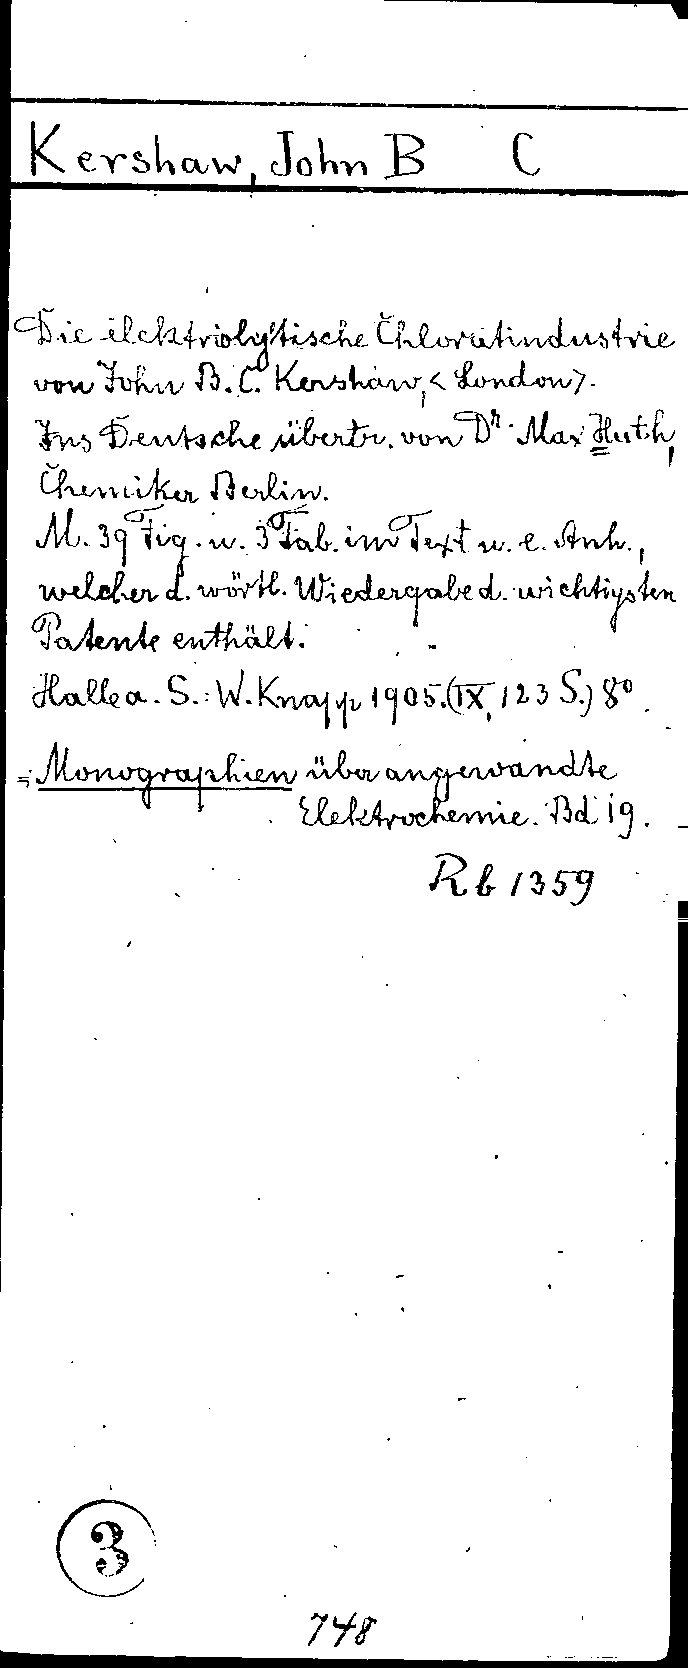 Kershaw, John B C
Die elektrolytische Chloratindustrie
von John B. C. Kershaw, < London >.
Ins Deutsche übertr. von Dr. Max Huth,
Chemiker Berlin.
M. 39 Fig. u. 3 Tab. im Text u. e. Anh.,
welcher d. wörtl. Wiedergabe d. wichtigsten
Patente enthält.
Halle a. S.: W. Knapp 1905. (IX, 123 S.) 8°.
= Monographien über angewandte
Elektrochemie. Bd 19.
Rb 1359
3
748